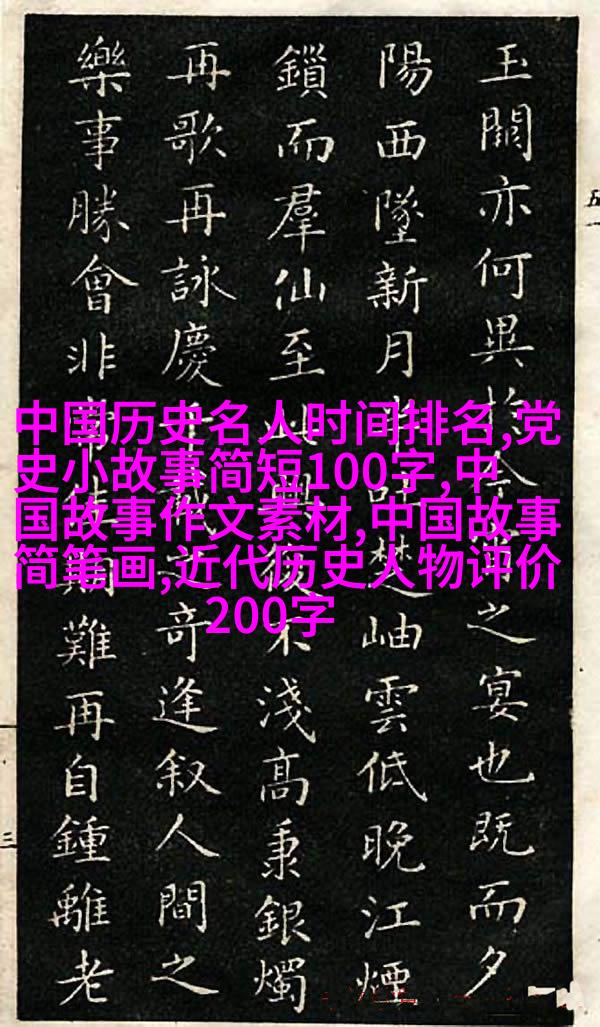 玉闕亦何異於今宵之宴也既而夕
陽西墜新月半吐楚岫雲低晚江煙
鎖而羣仙至此興復不淺高秉銀燭
再歌再詠慶千載之奇逢叙人間之
樂事勝會非常佳期難再自鍾離老
中国历史名人时间排名,党
史小故事简短100字,中
国故事作文素材,中国故事
简笔画,近代历史人物评价
200字